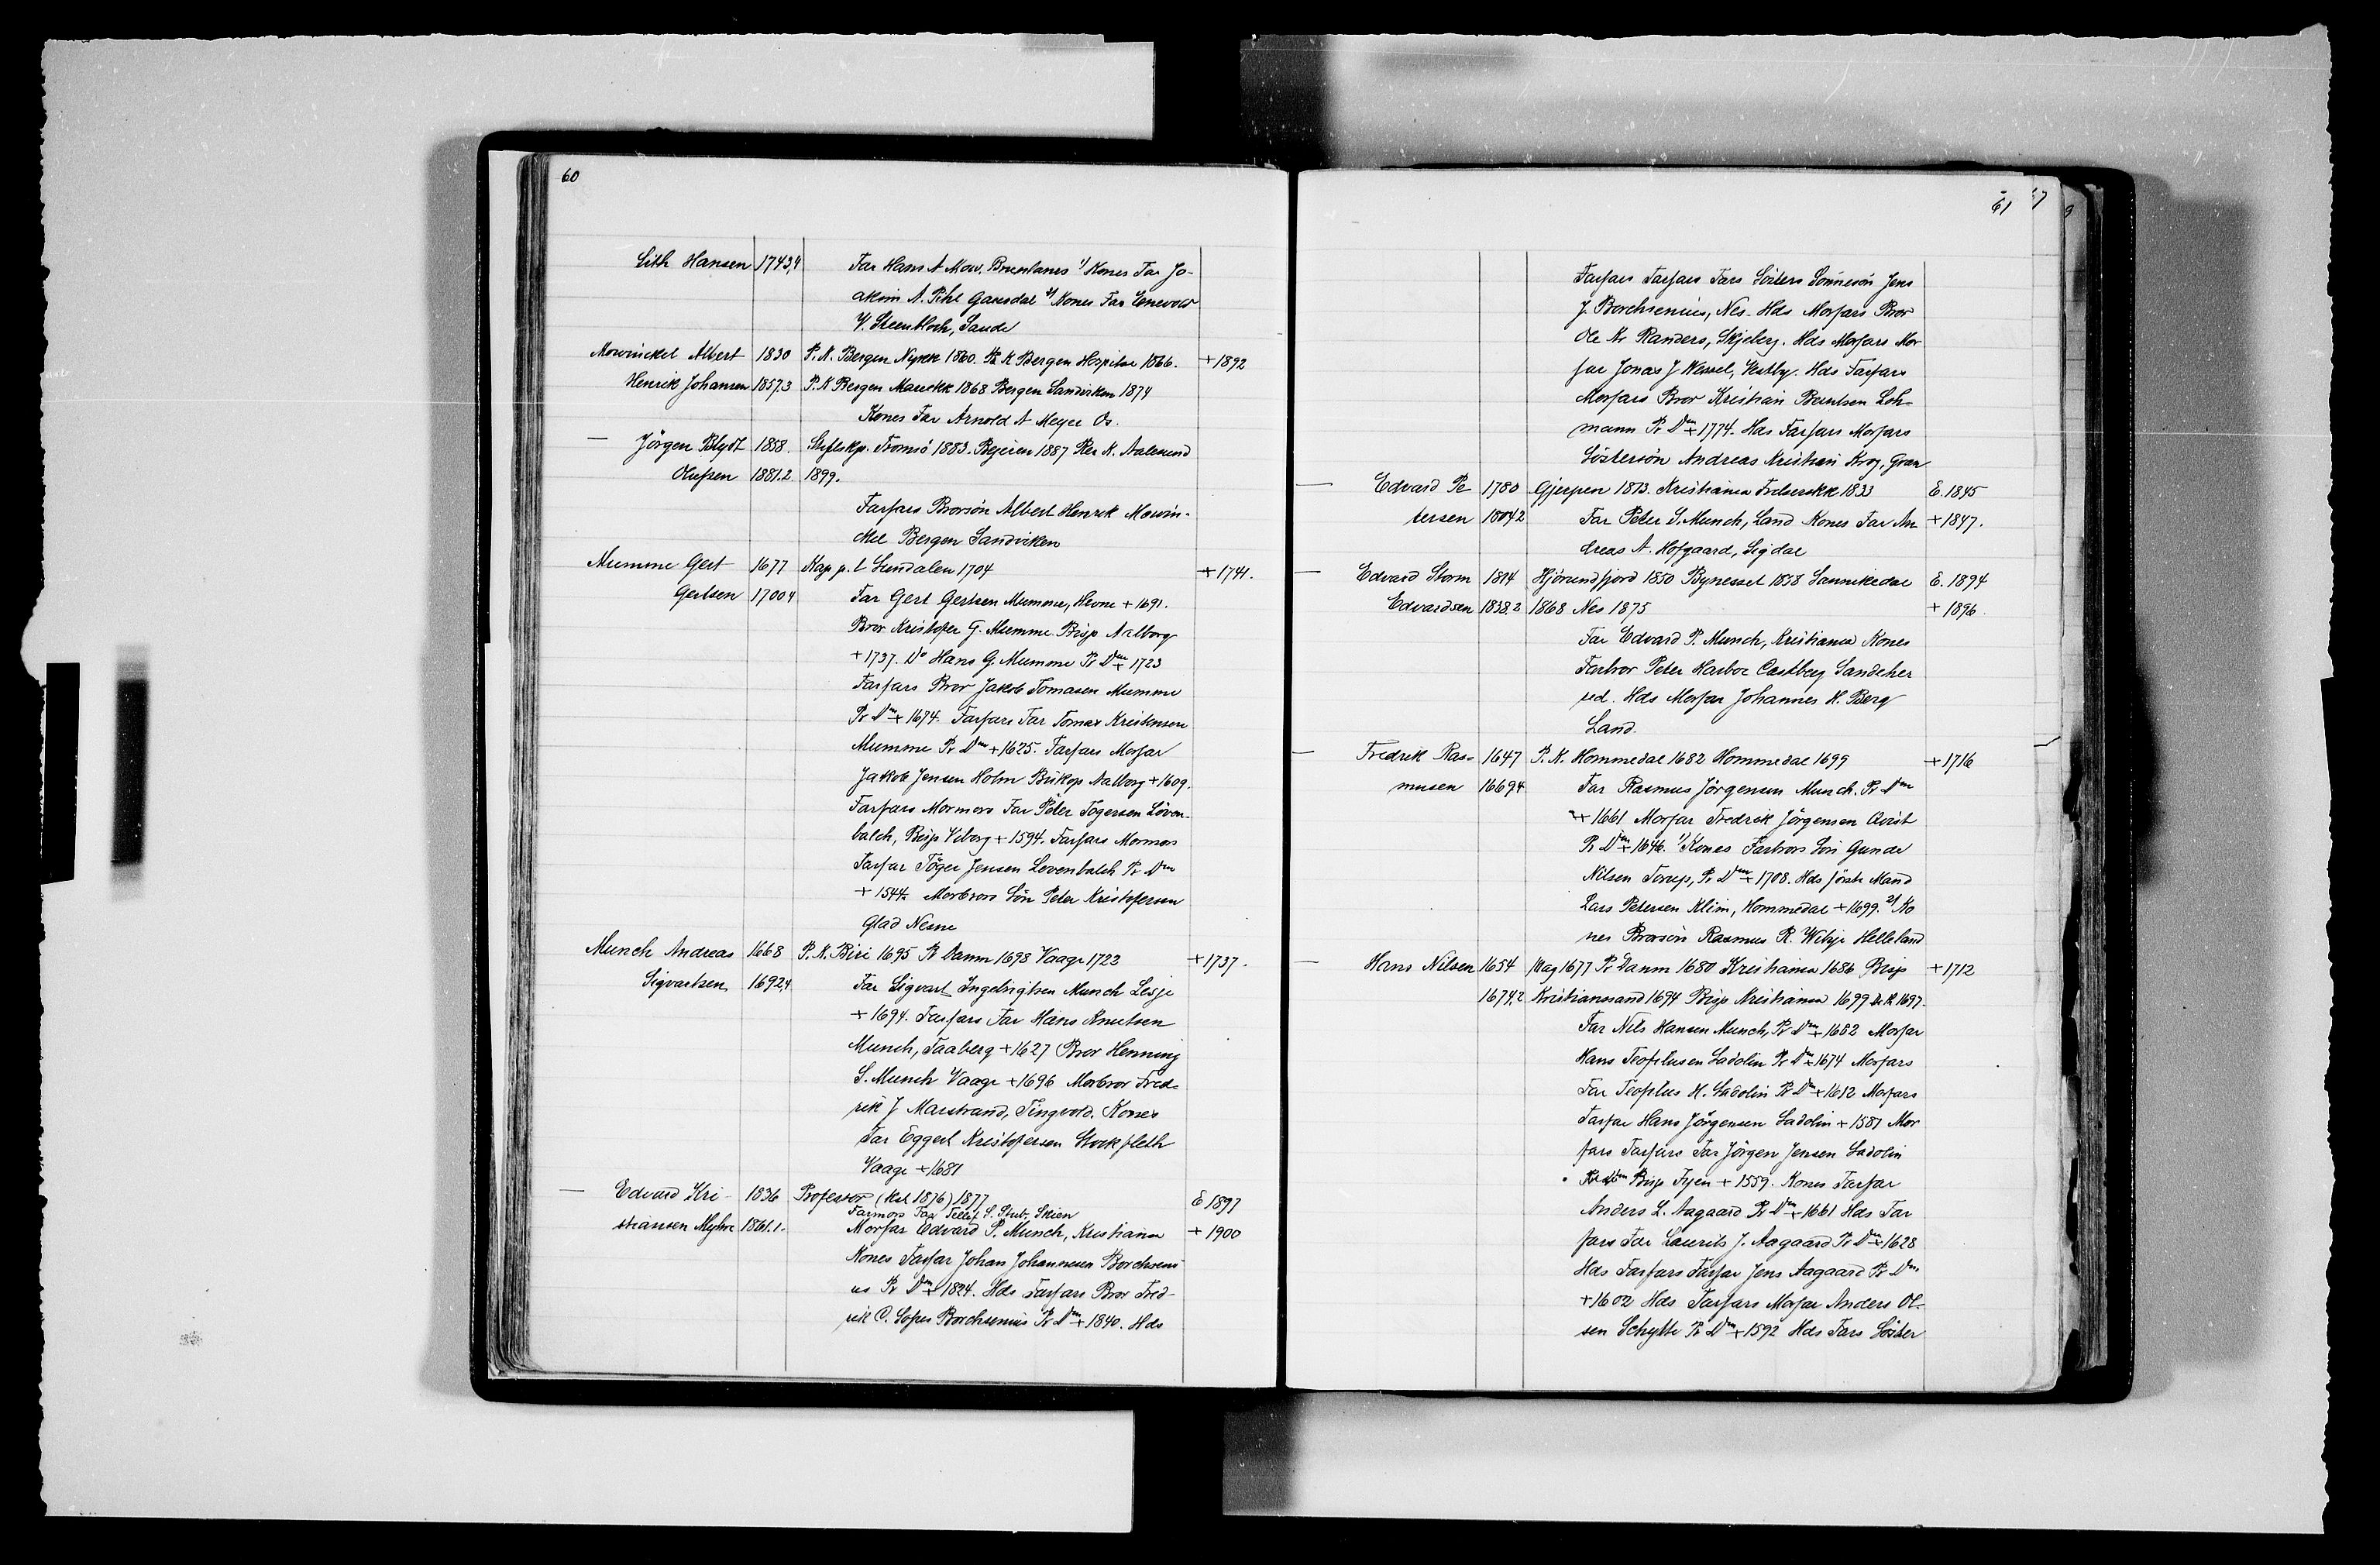 60
Lith Hansen 1743,4 Far Hans A Mow. Brunlanes 1/ Kones Far Jo-
akim A. Pihl Gausdal 2/ Kones Far Enevold
V. Steenbloch, Sande
Mowinckel Albert 1830 P. K. Bergen Nykk 1860. K Bergen Hospital 1866. + 1892
Henrik Johansen 1857.3 P. K Bergen Mariekk 1868 Bergen Sandviken 1874
Kones Far Arnold A Meyer Os.
— Jörgen Blydt 1858. Stiftskp. Tromsö 1883. Bejeren 1887 Res K. Aalesund
Olufsen 1881.2 1899.
Farfars Brorsön Albert Henrik Mowin-
ckel Bergen Sandviken
Mumme Gert 1677 Kap p. l Sundalen 1704 + 1741.
Gertsen 1700 4 Far Gert Gertsen Mumme, Hevne + 1691.
Bror Kristofer G. Mumme Bisp Aalborg
+ 1737. Do Hans G. Mumme Pr Dm + 1723
Farfars Bror Jakob Tomasen Mumme
Pr Dm + 1674. Farfars Far Tomas Kristensen
Mumme Pr Dm + 1625. Farfars Morfar
Jakob Jensen Holm Biskop Aalborg + 1609.
Farfars Mormors Far Peter Tögersen Löven-
balch, Bisp Viborg + 1594. Farfars Mormors
Farfar Töger Jensen Lovenbalch Pr Dm
+ 1544. Morbrors Sön Peter Kristofersen
Glad Nesne
Munch Andreas 1668 P. K. Biri 1695 Pr Danm 1698 Vaage 1723 + 1737.
Sigvartsen 1692,4 Far Sigvart Ingebrigtsen Munch Lesje
+ 1694. Farfars Far Hans Knutsen
Munch, Faaberg + 1627 Bror Henning
S. Munch Vaage + 1696 Morbror Fred-
rik J Marstrand, Tingvold. Kones
Far Eggert Kristofersen Stockfleth
Vaage + 1681
— Edvard Kri- 1836 Professor (Kst 1876) 1877 E 1897
Farmors Far Tellef S. Stub, Skien
stiansen Myhre 1861.1. Morfar Edvard P. Munch, Kristiania + 1900
Kones Farfar Johan Johannesen Borchseni
us Pr Dm + 1824. Hds Farfars Bror Fred-
rik C. Sofus Borchsenius Pr Dm + 1840. Hds
61
Farfars Farfars Fars Sösters Sönnesön Jens
J. Borchsenius, Nes. Hds Morfars Bror
Ole Kr Randers, Skjeberg. Hds Morfars Mor
far Jonas J Wessel, Vestby. Hds Farfars
Morfars Bror Kristian Berntsen Loh-
mann Pr Dm + 1774. Hds Farfars Morfars
Söstersön Andreas Kristian Krog, Gran
— Edvard Pe 1780 Gjerpen 1813. Kristiania Frelserskk 1833 E. 1845
tersen 1804 2 Far Peter S. Munch, Land Kones Far An + 1847.
dreas A. Hofgaard, Sigdal
— Edvard Storm 1814 Hjörundfjord 1850 Bynesset 1858 Sannikedal E. 1894
Edvardsen 1838.2 1868 Nes 1875 + 1896
Far Edvard P. Munch, Kristiania Kones
Farbror Peter Harboe Castberg Sandeher
red. Hds Morfar Johannes H. Berg
Land.
— Fredrik Ras- 1647 P. K. Hommedal 1682 Hommedal 1699 + 1716
musen 1669,4 Far Rasmus Jörgensen Munch. Pr Dm
+ 1661 Morfar Fredrik Jörgensen Qvist
Pr Dm + 1646. 1/ Kones Farbrors Sön Gunde
Nilsen Torup, Pr Dm + 1708. Hds förste Mand
Lars Petersen Klim, Hommedal + 1699. 2/ Ko
nes Brorsön Rasmus R. Wibye Helleland
— Hans Nilsen 1654 Mag 1677 Pr Danm 1680 Kristiania 1686 Bisp + 1712
1674.2 Kristianssand 1694 Bisp Kristiania 1699 Dr R. 1697.
Far Nils Hansen Munch, Pr Dm + 1682 Morfar
Hans Teofilusen Sadolin Pr Dm + 1674 Morfars
Far Teofilus H. Sadolin Pr Dm + 1612 Morfars
Farfar Hans Jörgensen Sadolin + 1581 Mor
fars Farfars Far Jörgen Jensen Sadolin
Bisp Fyen + 1559. Kones Farfar
Anders L. Aagaard Pr Dm + 1661 Hds Far
fars Far Laurits J. Aagaard Pr Dm + 1628
Hds Farfars Farfar Jens Aagaard Pr Dm
+ 1602 Hds Farfars Morfar Anders Ol-
sen Schytte Pr Dm + 1592 Hds Fars Söster